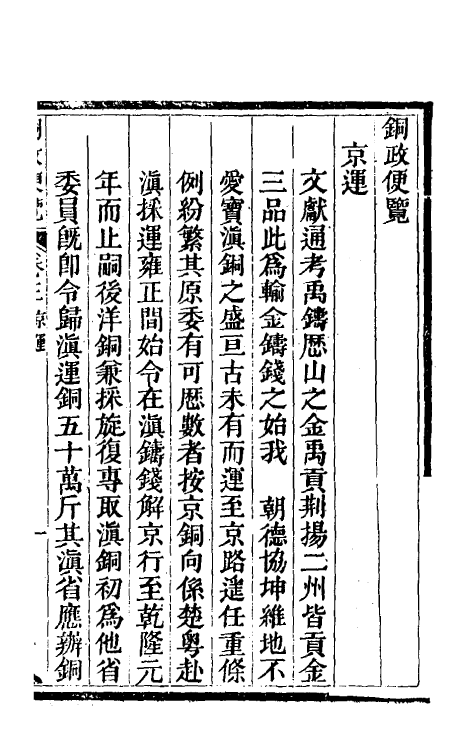 銅政便覽
京運
文獻通考禹鑄歷山之金禹貢荆揚二州皆貢金
三品此爲輸金鑄錢之始我　朝德協坤維地不
愛寶滇銅之盛亘古未有而運至京路遥任重條
例紛繁其原委有可歷數者按京銅向係楚粤赴
滇採運雍正間始令在滇鑄錢解京行至乾隆元
年而止嗣後洋銅兼採旋復專取滇銅初爲他省
委員旣卽令歸滇運銅五十萬斤其滇省應辦銅
銅政便覽 卷三 京運 一